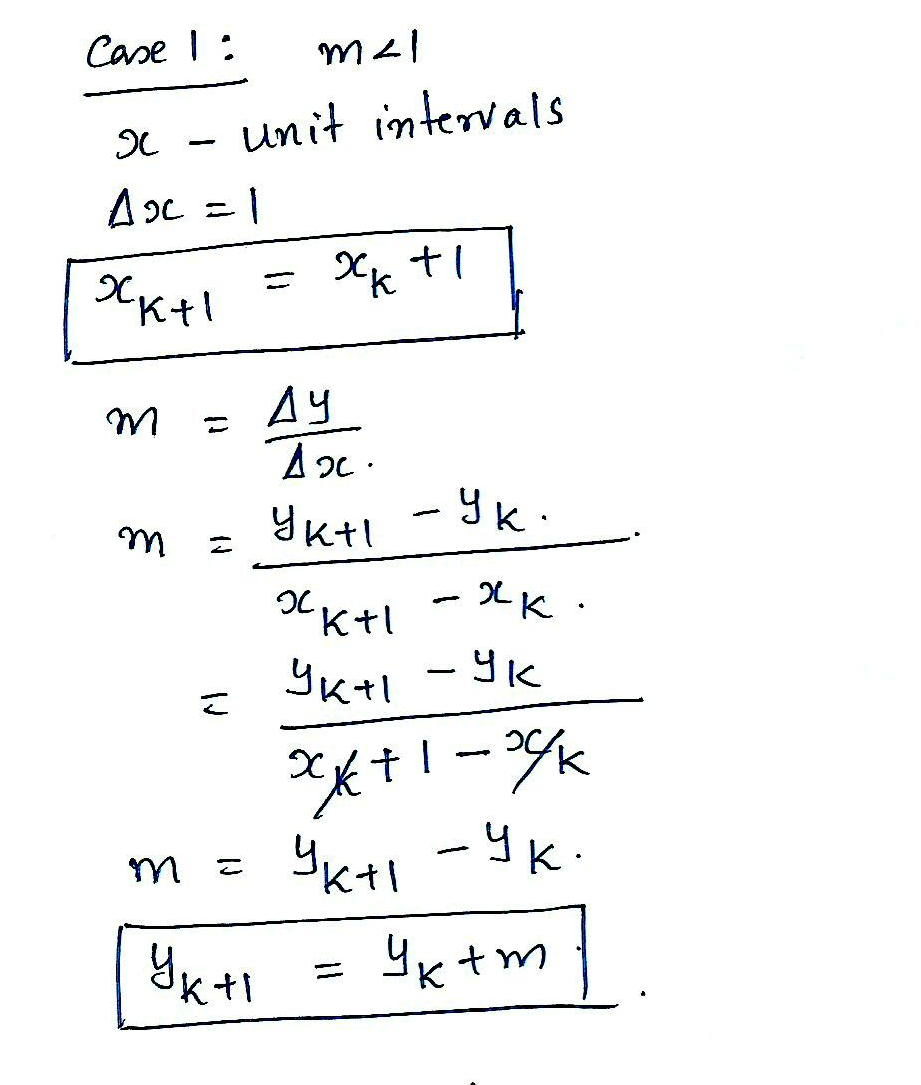 Case 1 : m<1
x - unit intervals
Δx = 1
x_{k+1} = x_k + 1
m = Δy / Δx.
m = y_{k+1} - y_k. / x_{k+1} - x_k.
= y_{k+1} - y_k / x_k + 1 - x_k
m = y_{k+1} - y_k.
y_{k+1} = y_k + m.